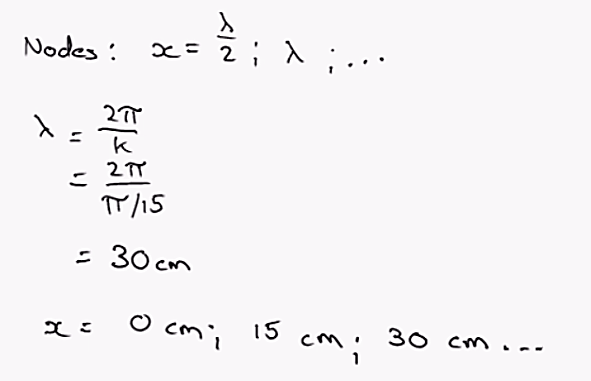 Nodes: x = λ/2 ; λ ; ...
λ = 2π/k
= 2π/(π/15)
= 30 cm
x = 0 cm; 15 cm; 30 cm ...